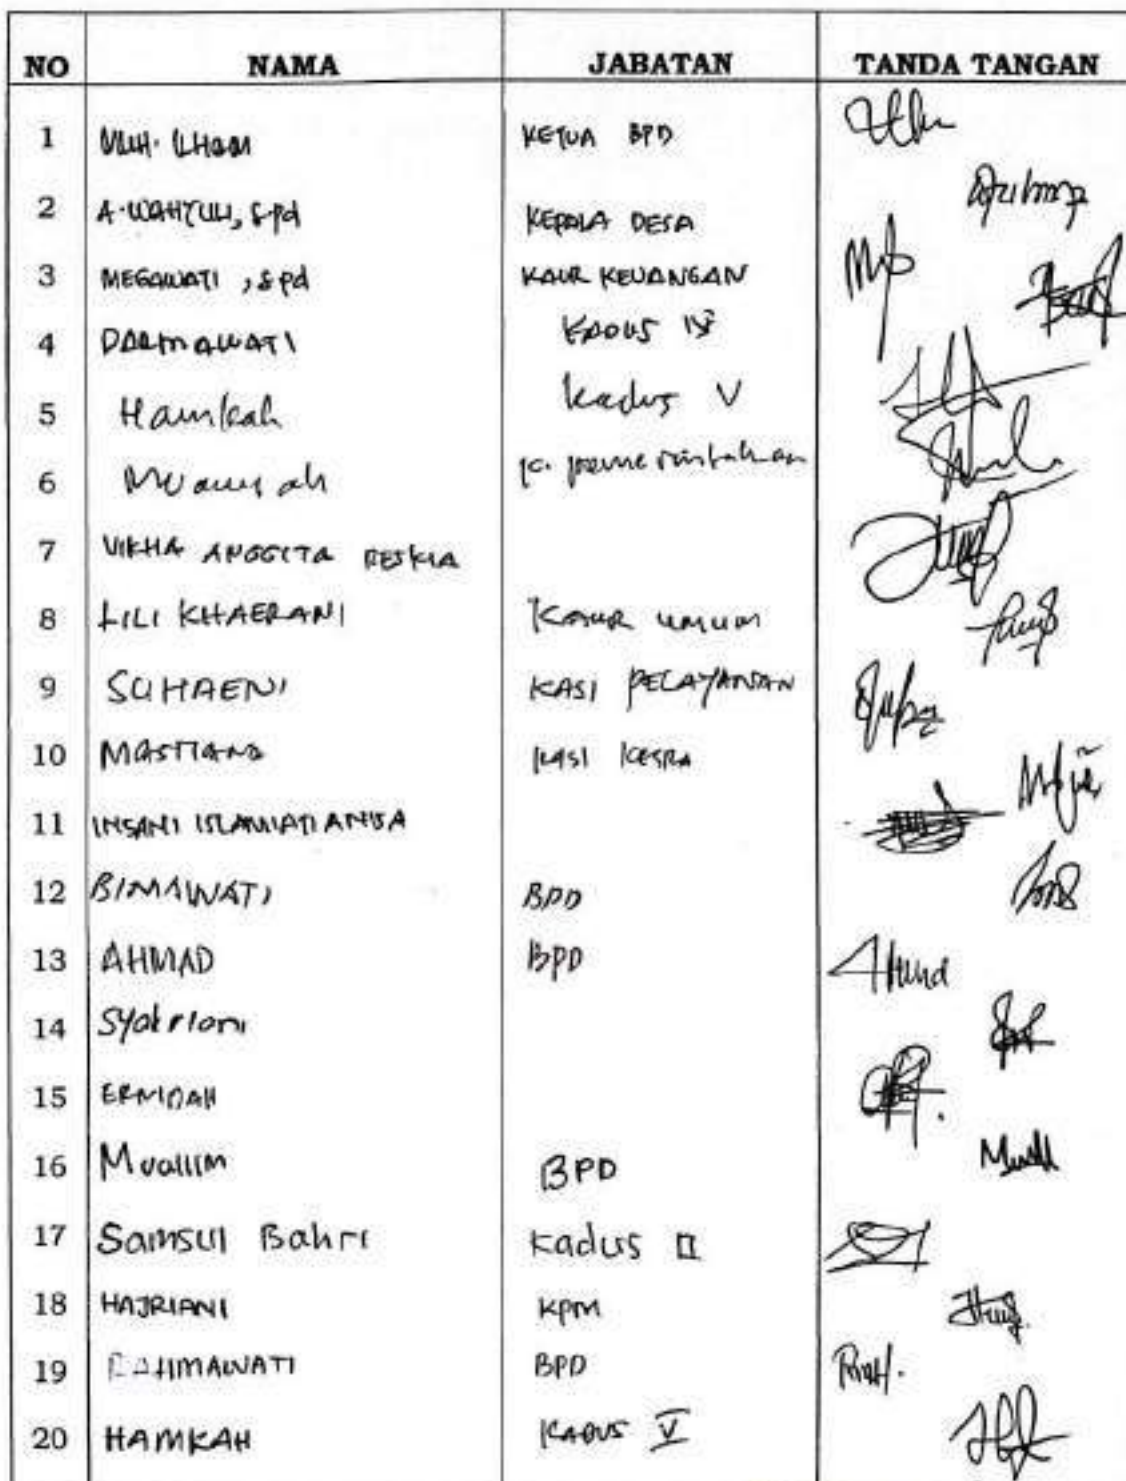 NO NAMA JABATAN TANDA TANGAN
1 MUH. ILHAM KETUA BPD
2 A. WAHYULI, S.pd KEPALA DESA
3 MEGAWATI, S.pd KAUR KEUANGAN
4 DARMAWATI KADUS IV
5 Hamkah Kadus V
6 K. pemerintahan
7 VIKHA ANGGITA RESKIA
8 LILI KHAERANI KAUR UMUM
9 SUHAENI KASI PELAYANAN
10 MASTIANA KASI KESRA
11 INSANI ISLAMIATI
12 BIMAWATI BPD
13 AHMAD BPD
14 Syahriani
15 ERNIDAH
16 Muallim BPD
17 Samsul Bahri Kadus II
18 HAJRIANI KPM
19 RAHMAWATI BPD
20 HAMKAH KADUS V